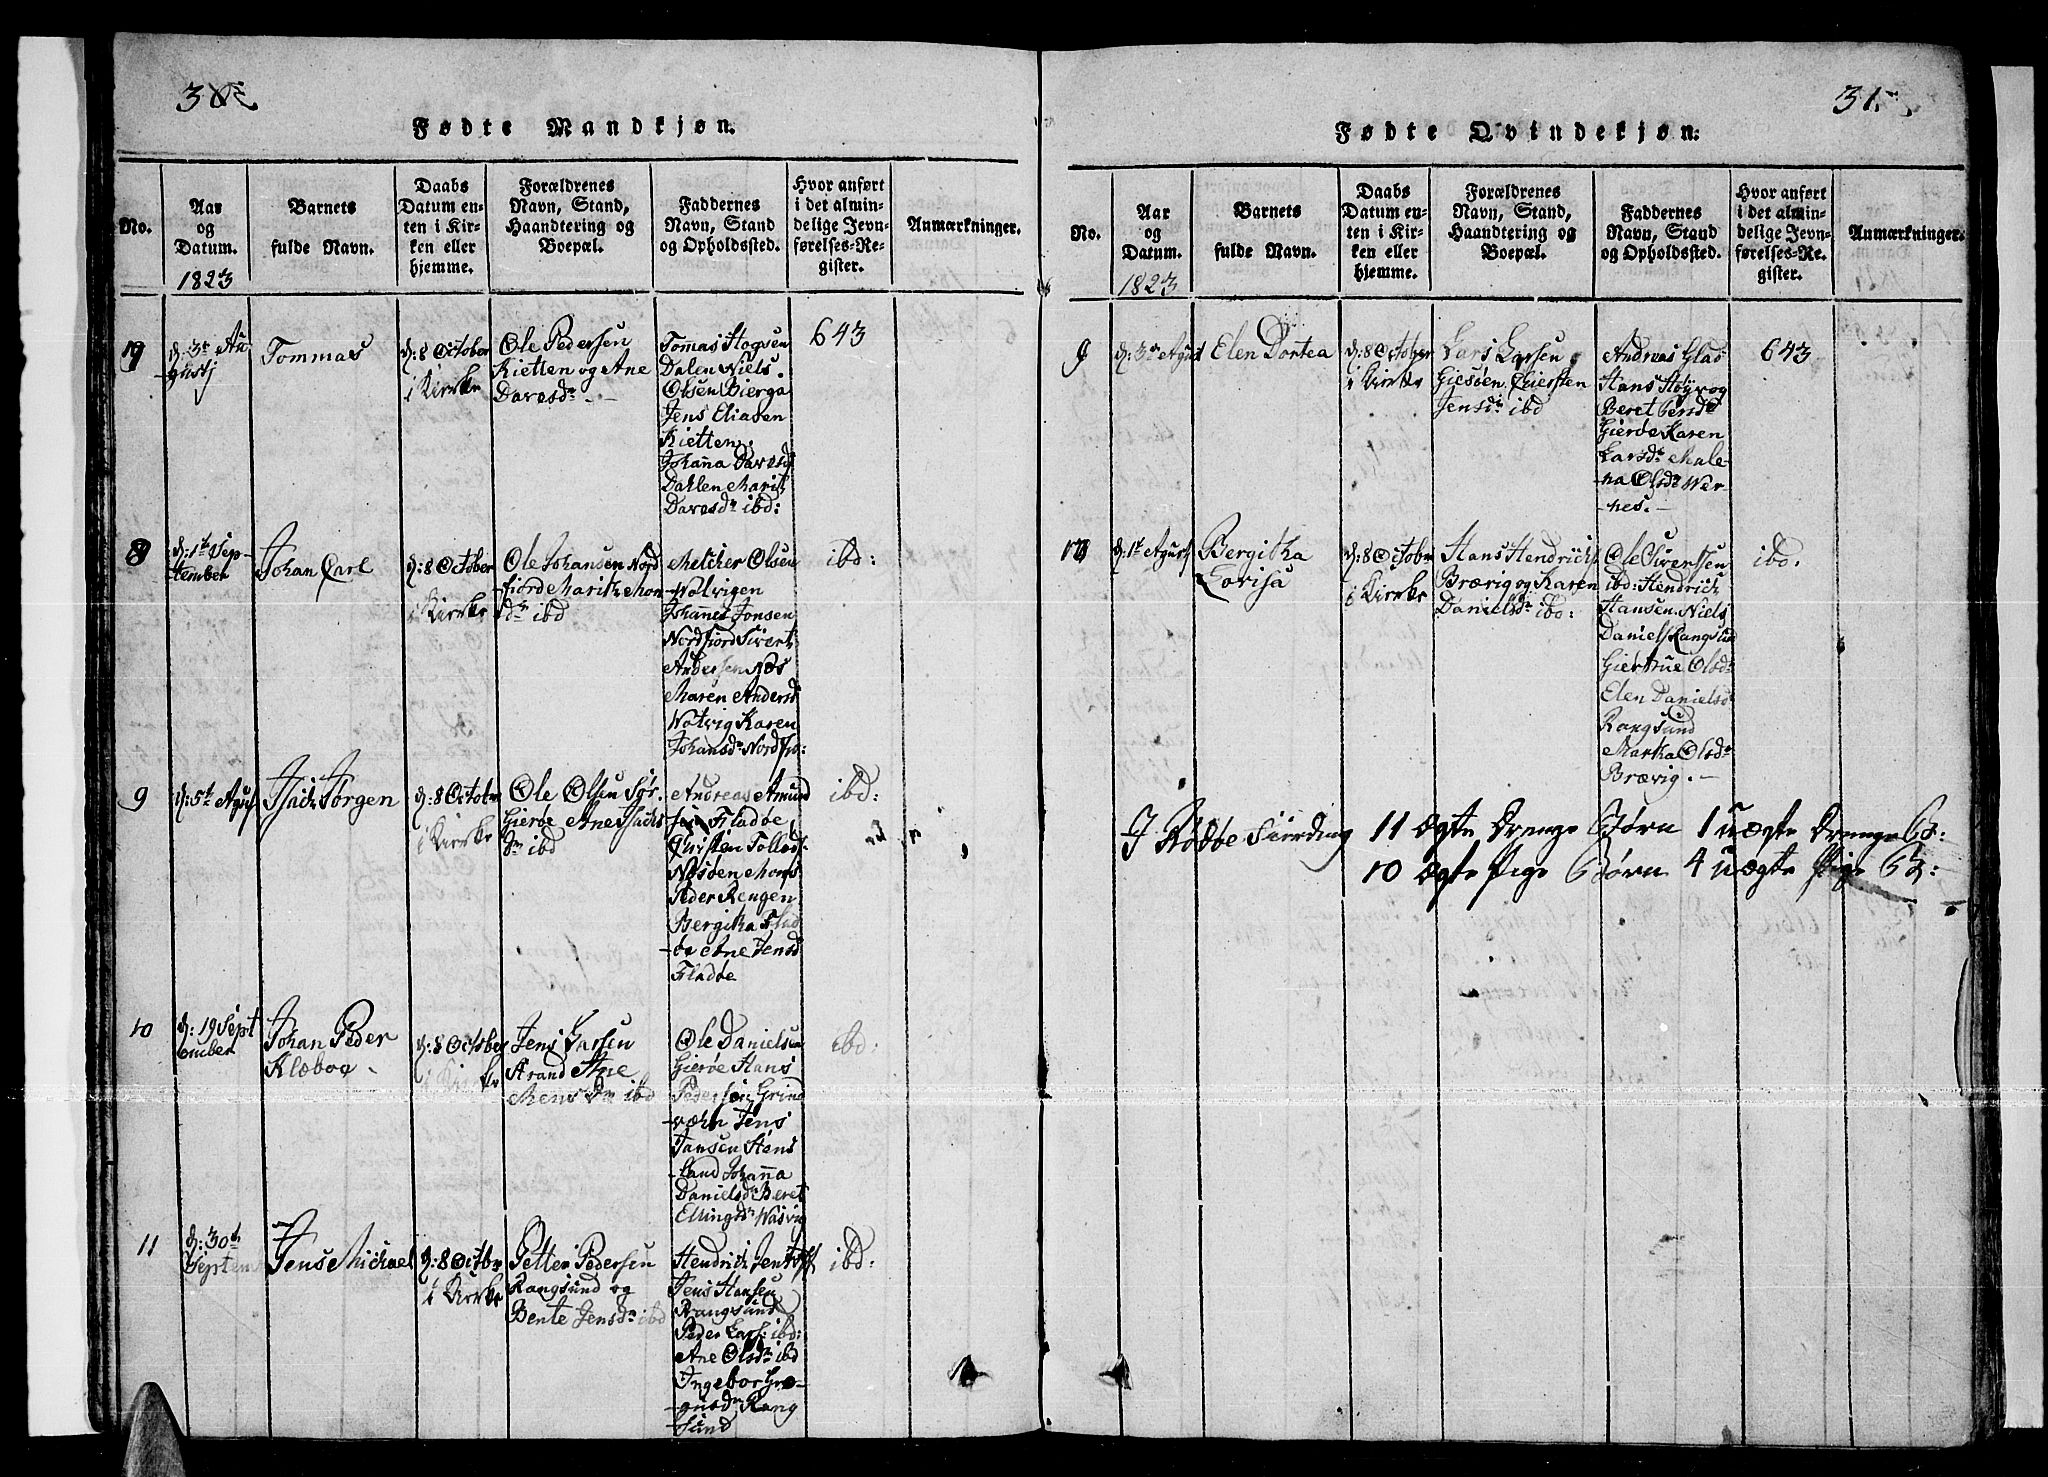 Fødte Mandkjøn.
No.
Aar
og
Datum.
1823
Barnets
fulde Navn.
Daabs
Datum en-
ten i Kir-
ken eller
hjemme.
Forældrenes
Navn, Stand,
Haandtering og
Boepæl.
Faddernes
Navn, Stand
og Opholdssted.
Hvor anført
i det almin-
delige Jevn-
førelses-Re-
gister.
Anmærkninger.
d: 3e Au
gustj
Tommas
d: 8 October
i Kirke
Ole Pedersen
Kietten og Ane
Daresdr
Tomas Hogsen
Dalen Niels
Olsen Bierga
Jens Eliasen
Kietten
Johanna Daresd
Dahlen Marit
Daresdr ibd:
643
8
d: 1te Sep-
tember
Johan Carl
d: 8 October
i Kirke
Ole Johansen Nord
fiord Marit Mon
dr ibd
Melcher Olsen
Johannes Jonsen
Nordfiord Sivert
Andersen Nøs
Maren Andersd
Watvig Karen
Johansdr Nordfio:
ibd:
9
d: 5te Agust
Isach Jørgen
d: 8 Octobr
i Kirke
Ole Olsen Sør
Gierøe Ane Isachs
dr ibd
Andreas Amund
sen Fladøe
Christen Tollos
Nøsøen Mons
Peder Rengen
Bergitha Flad
-øe Ane Jensd
Fladøe
ibd:
10
d: 19 Sept
ember
Johan Peder
Klæboe
d: 8 Octobr
i Kirke
Jens Larsen
Strand Ane
Mensdr ibd
Ole Danielsen
Gierøe Hans
Pedersen Grind
Jens
Jansen Stens
land Johanna
Danielsdr Beret
Ellingsdr Wasvig
ibd:
11
d: 30te
Septem
Jens Michael
d: 8 Octobr
i Kirke
Petter Pedersen
Rangsund og
Bente Jensdr ibd
Hendrich Jentoff
Jens Hansen
Rangsund
Peder Lars: ibd:
Ane Olsdr ibd
Ingebor Græ-
gusdr Rang
sund
ibd:
31.
Fødte Qvindekjøn:
No.
Aar
og
Datum.
1823
Barnets
fulde Navn.
Daabs
Datum en-
ten i Kir-
ken eller
hjemme.
Forældrenes
Navn, Stand,
Haandtering og
Boepæl.
Faddernes
Navn, Stand
og Opholdssted.
Hvor anført
i det almin-
delige Jevn-
førelses-Re-
gister.
Anmærkninger.
9
d: 3die Agust
Elen Dortea
d: 8 October
i Kirke
Lars Larsen
Giesøen Chiersten
Jensdr ibd
Andreas Glad
Hans Støver og
Beret Persdr
Gierøe Karen
Larsdr Male-
na Olsdr Wer-
nes.
643
10
d: 1te Agust
Bergitha
Lovisa
d: 8 Octobr
i Kirke
Hans Hendrichs
Brævig og Karen
Danielsdr ibd:
Ole Sivertsen
ibd: Hendrich
Hansen Niels
Daniels Rangsund
Giertrue Olsdr
Elen Daniels
Rangsund
Martha Olsdr
Brævig.
ibd.
I Rødøe Fierding 11 ægte Drenge Børn 1 uægte Drenge B:
10 ægte Pige Børn 4 uægte Pige B: